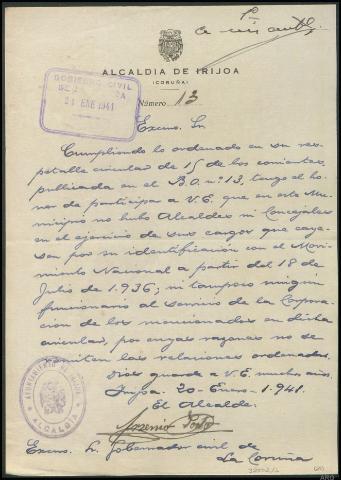 ALCALDIA DE IRIJOA
(CORUÑA)
GOBIERNO CIVIL
21 ENE 1941
Número 13
Excmo. Sr.
Cumpliendo lo ordenado en su res-
petable circular de 15 de los corrientes,
publicada en el B.O. nº 13, tengo el ho-
nor de participar a V.E. que en este Mu-
nicipio no hubo Alcaldes ni Concejales
en el ejercicio de sus cargos que caye-
sen por su identificación con el Movi-
miento Nacional a partir del 18 de
Julio de 1.936; ni tampoco ningún
funcionario al servicio de la Corpora-
ción de los mencionados en dicha
circular, por cuyas razones no se
remiten las relaciones ordenadas.
Dios guarde a V.E. muchos años.
Irijoa 20 Enero 1.941.
El Alcalde.
AYUNTAMIENTO DE IRIJOA
ALCALDIA
Excmo. Sr. Gobernador civil de
La Coruña